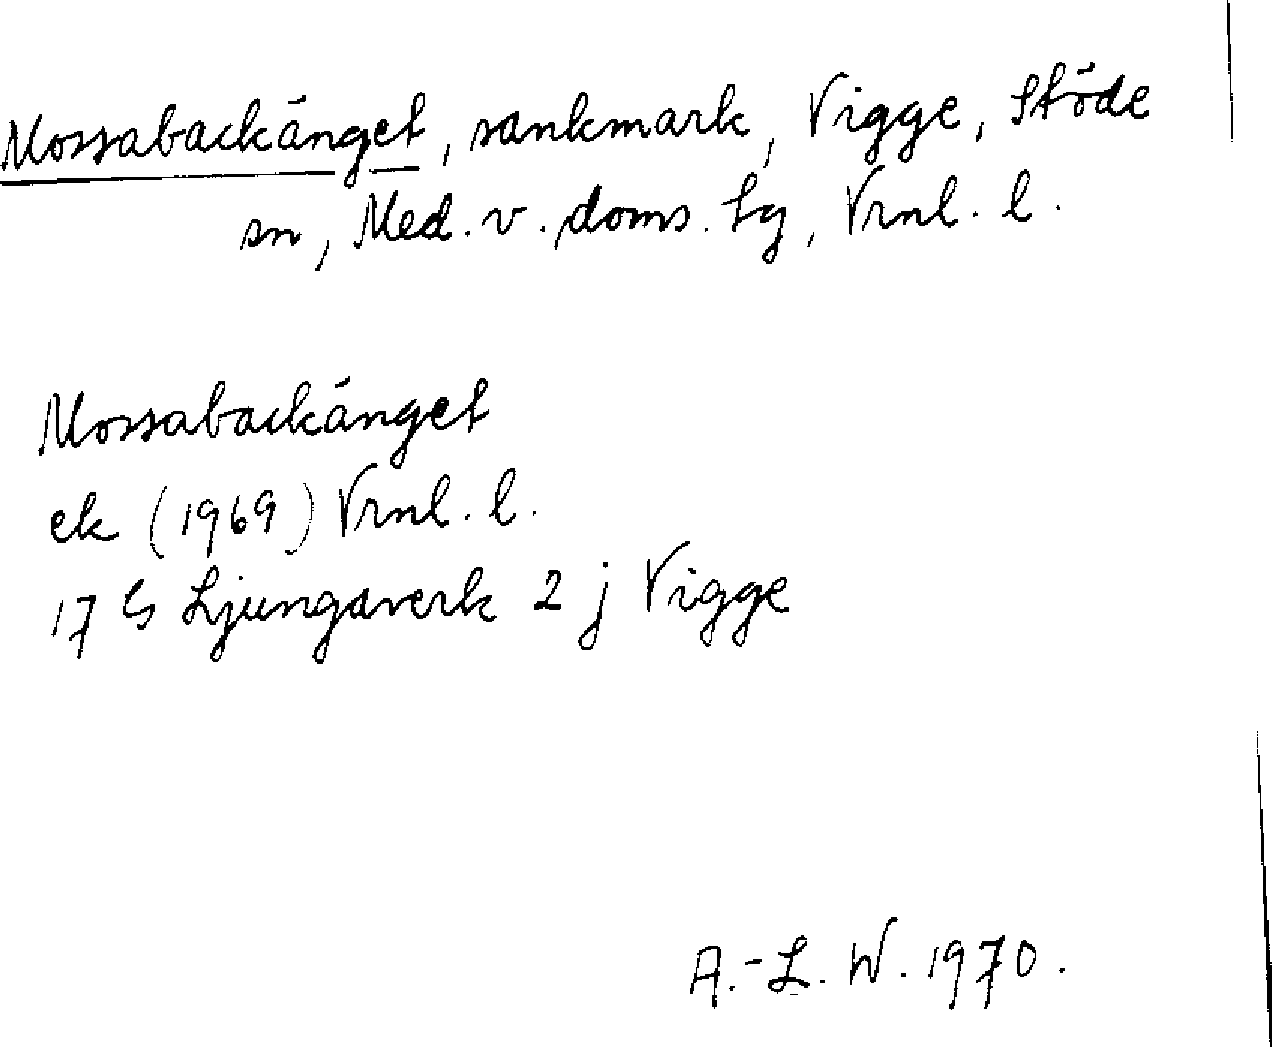 Mossabackänget, sankmark, Vigge, Stöde
sn, Med. v. doms. tg, Vrnl. l.
Mossabackänget
ek (1969) Vrnl. l.
17 G Ljungaverk 2 j Vigge
A.-L. W. 1970.